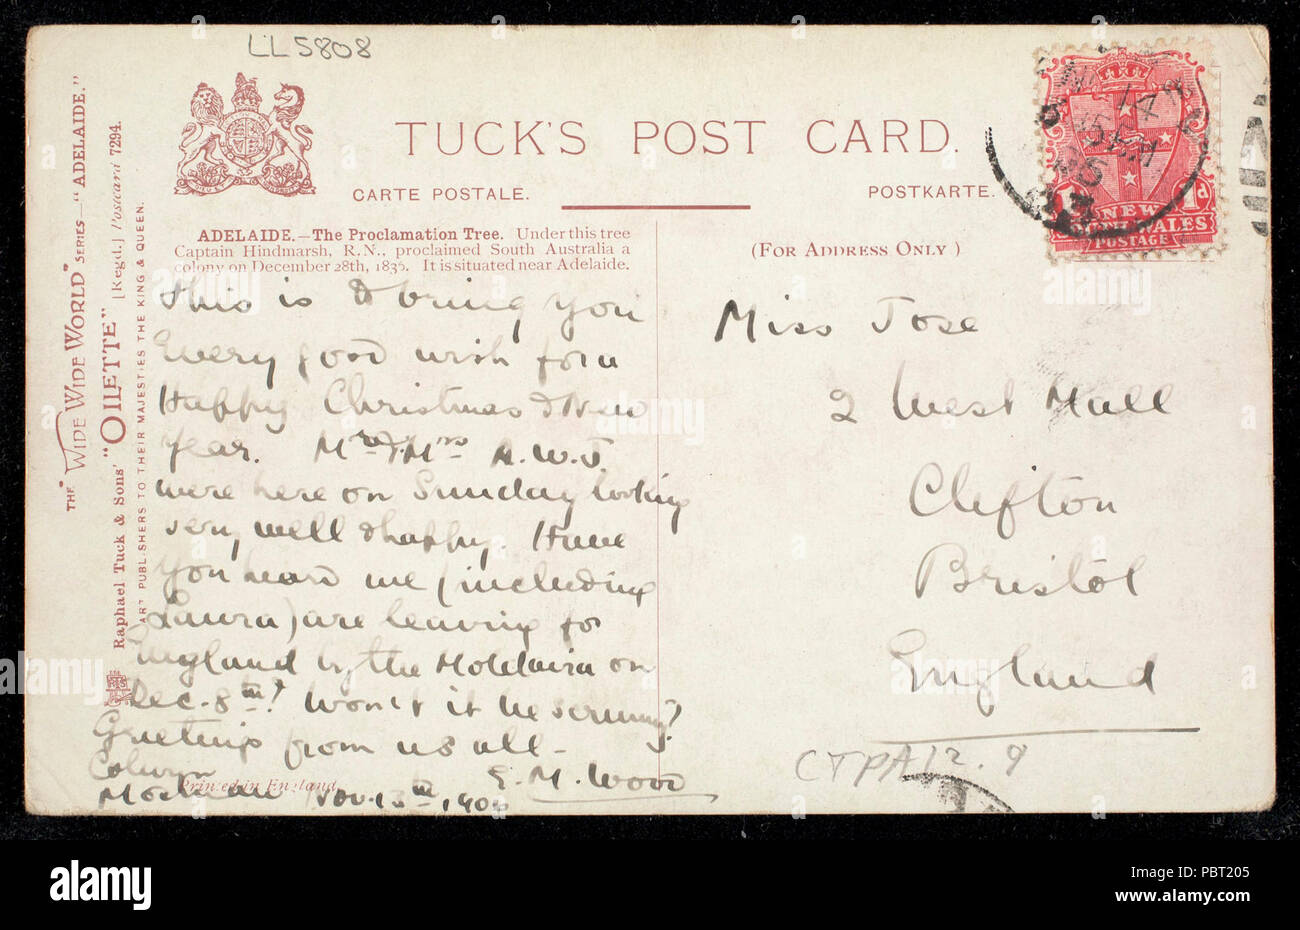 LL5808
THE "WIDE WIDE WORLD" SERIES—"ADELAIDE."
Raphael Tuck & Sons' "OILETTE" [Regd.] Postcard 7294.
ART PUBLISHERS TO THEIR MAJESTIES THE KING & QUEEN.
TUCK'S POST CARD.
CARTE POSTALE.
POSTKARTE.
ADELAIDE.—The Proclamation Tree. Under this tree
Captain Hindmarsh, R.N., proclaimed South Australia a
colony on December 28th, 1836. It is situated near Adelaide.
(FOR ADDRESS ONLY)
This is to bring you
Every good wish for a
Happy Christmas & New
Year. Mr & Mrs A.W.J.
were here on Sunday looking
very well & happy. Have
you heard we (including
Laura) are leaving for
England by the Moldavia on
Dec. 8th? Won't it be
Greetings from us all —
E. M. Wood
Nov. 13th, 1906
Printed in England
Miss Jose
2 West Mall
Clifton
Bristol
England
CTPA12.9
1d NEW 1d
SOUTH WALES
POSTAGE
alamy
Image ID: PBT205
www.alamy.com